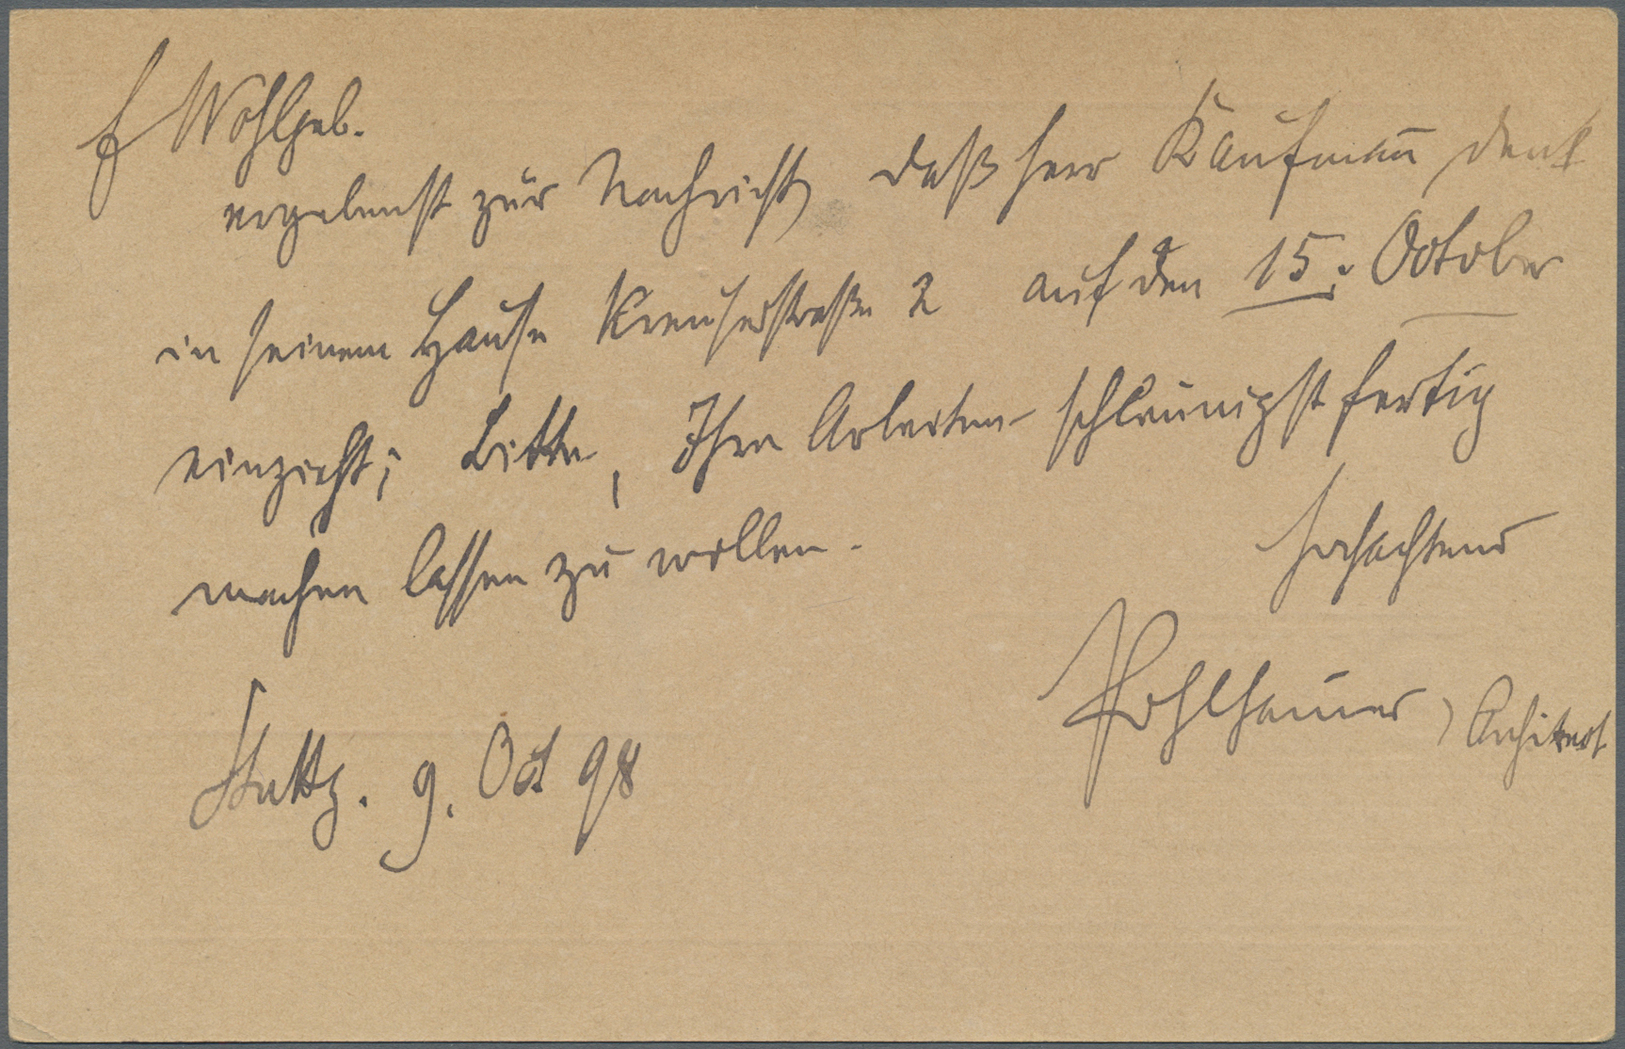 E Wohlgeb.
ergebenst zur Nachricht, daß Herr Kaufmann
in seinem Hause 2 auf den 15. October
einzieht; bitte, Ihre Arbeiten schleunigst fertig
machen lassen zu wollen.
Hochachtend
Architect
Stuttg. 9. Oct 98